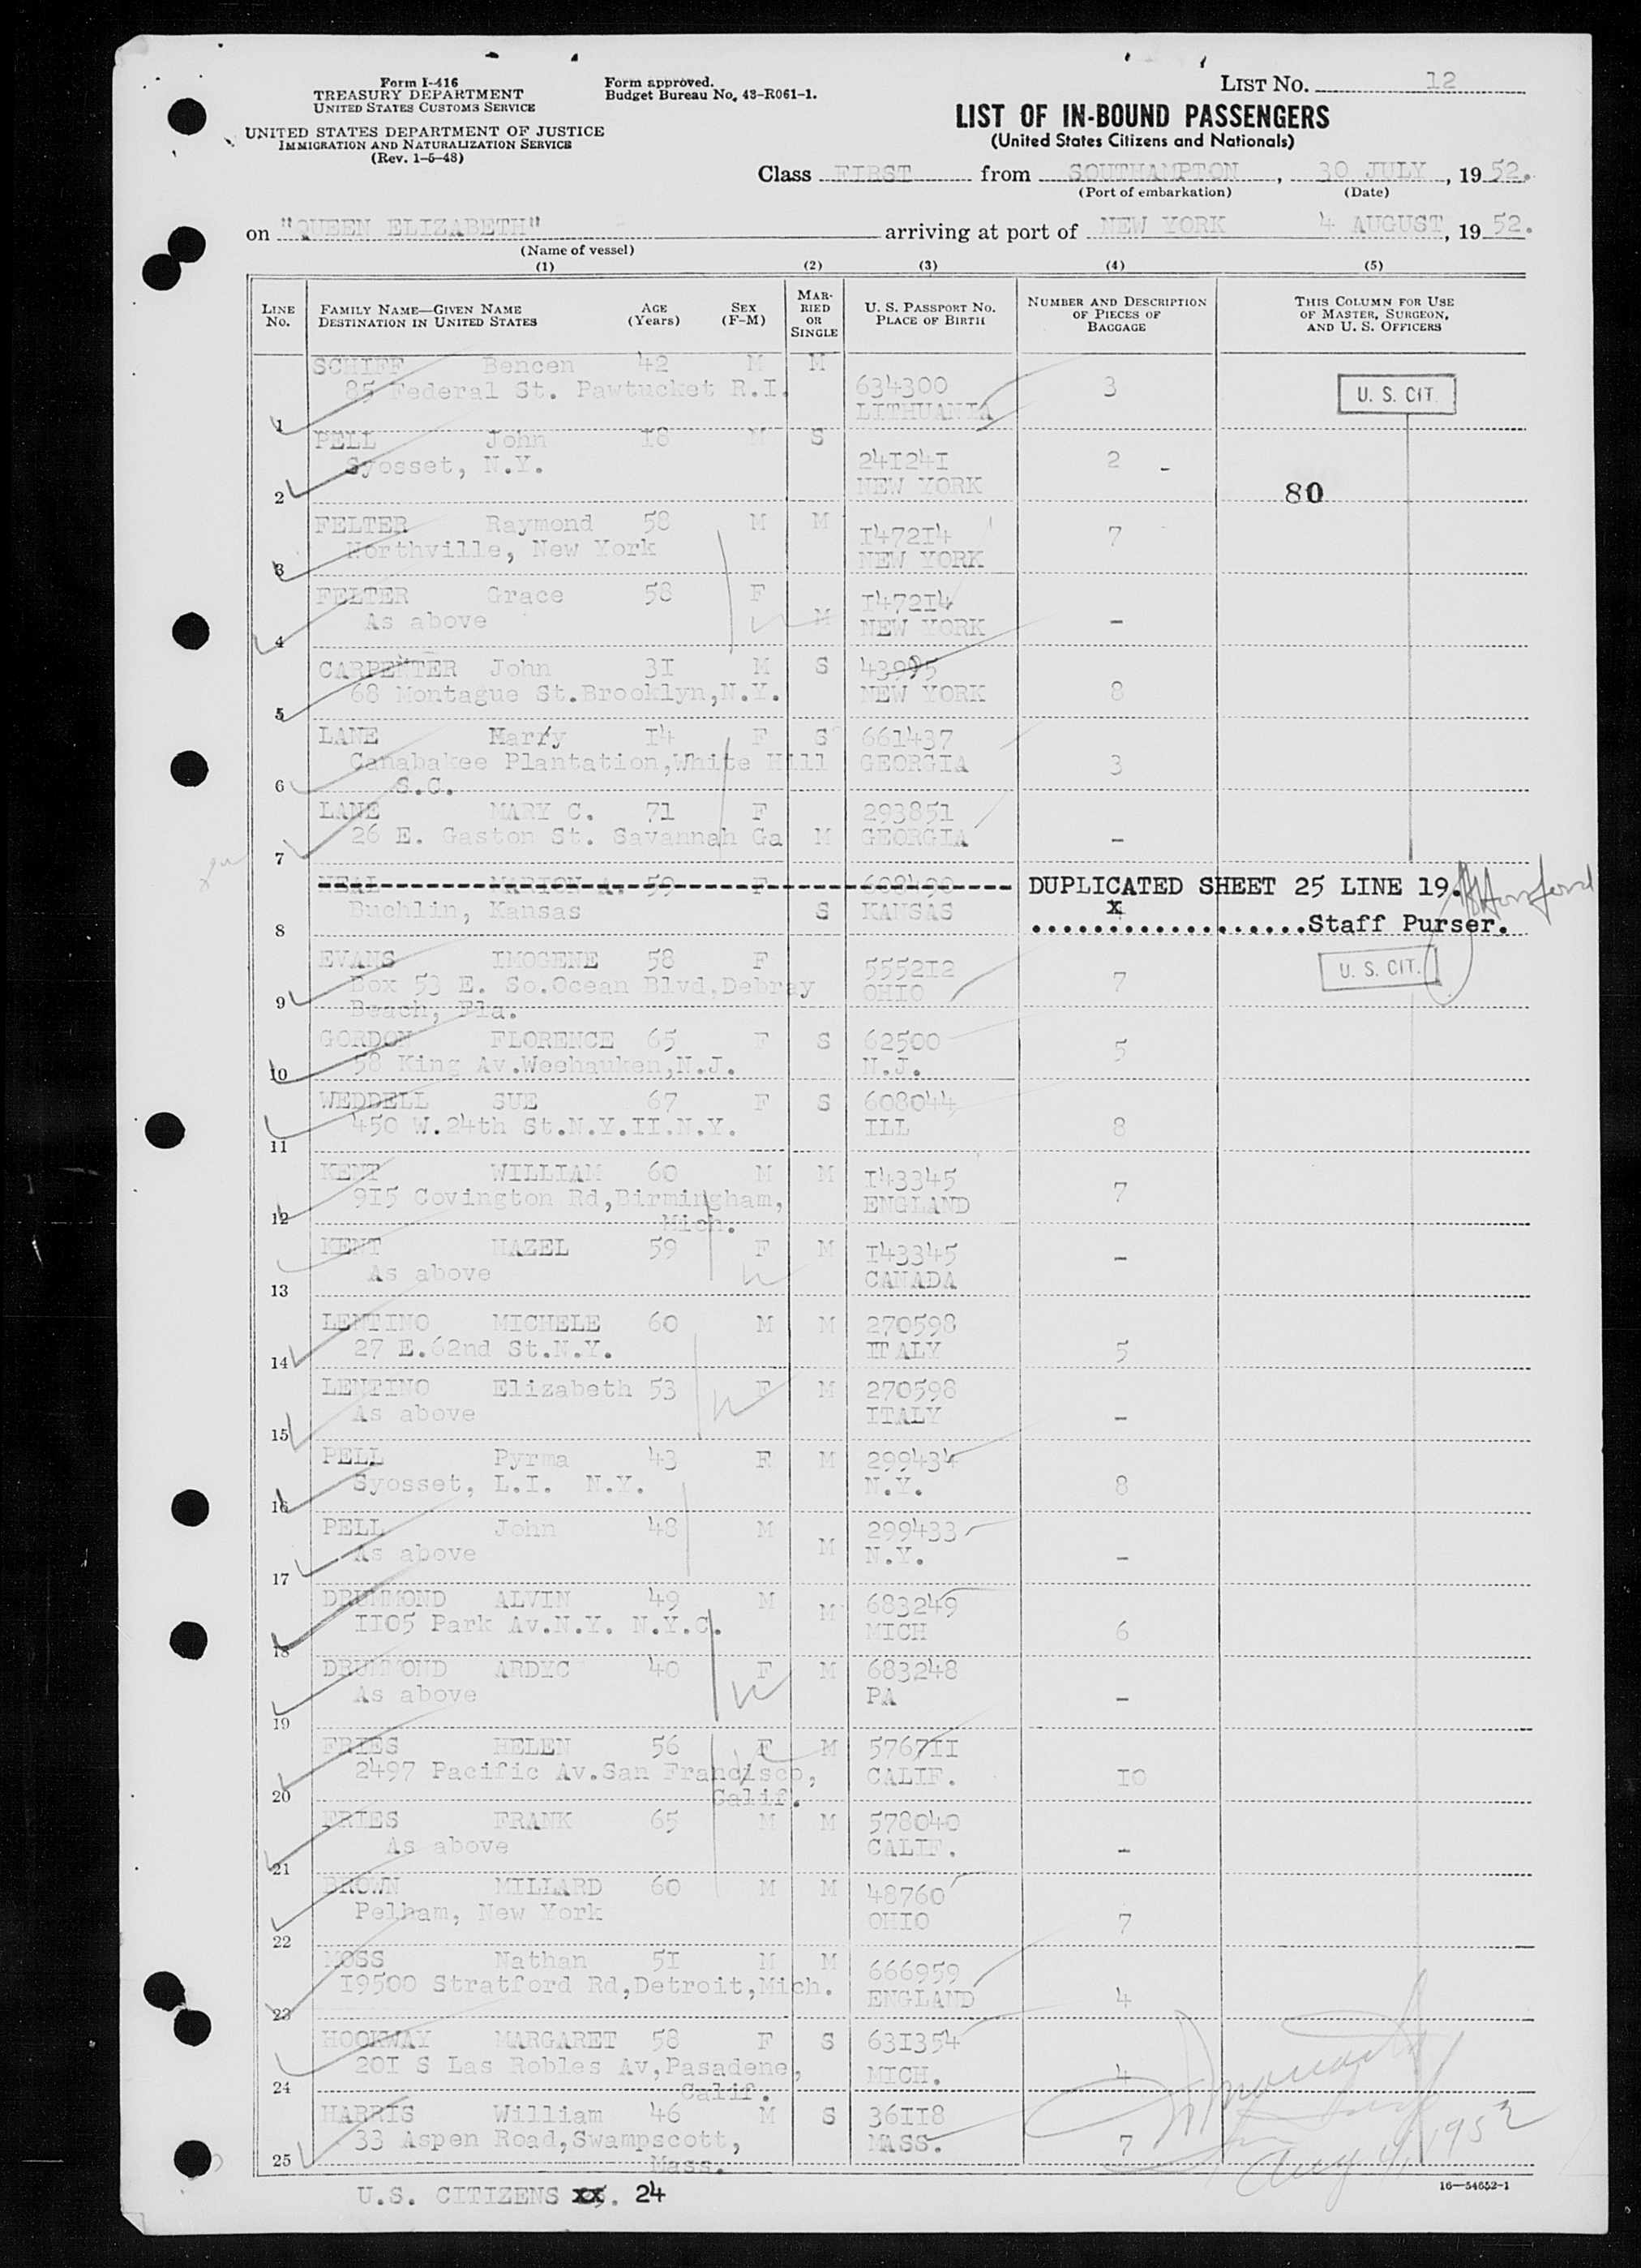 Form I-416
TREASURY DEPARTMENT
UNITED STATES CUSTOMS SERVICE
UNITED STATES DEPARTMENT OF JUSTICE
IMMIGRATION AND NATURALIZATION SERVICE
(Rev. 1-5-48)
Form approved.
Budget Bureau No. 43-R061-1.
LIST NO. 12
LIST OF IN-BOUND PASSENGERS
(United States Citizens and Nationals)
Class FIRST from SOUTHAMPTON, 30 JULY, 1952.
(Port of embarkation) (Date)
on "QUEEN ELIZABETH" arriving at port of NEW YORK 4 AUGUST, 1952.
(Name of vessel)
(1) (2) (3) (4) (5)
LINE NO. FAMILY NAME—GIVEN NAME DESTINATION IN UNITED STATES AGE (Years) SEX (F-M) MARRIED OR SINGLE U. S. PASSPORT NO. PLACE OF BIRTH NUMBER AND DESCRIPTION OF PIECES OF BAGGAGE THIS COLUMN FOR USE OF MASTER, SURGEON, AND U. S. OFFICERS
SCHIFF Bencen 42 M M 634300 3 U. S. CIT.
1 85 Federal St. Pawtucket R.I. LITHUANIA
PELL John I8 M S 24I24I 2 -
2 Syosset, N.Y. NEW YORK 80
FELTER Raymond 58 M M I472I4 7
3 Northville, New York NEW YORK
FELTER Grace 58 F M I472I4 -
4 As above NEW YORK
CARPENTER John 3I M S 43995 8
5 68 Montague St.Brooklyn,N.Y. NEW YORK
LANE Marry I4 F S 661437 3
6 Canabakee Plantation,White Hill GEORGIA
S.C.
LANE MARY C. 71 F M 293851 -
7 26 E. Gaston St. Savannah Ga GEORGIA
NEAL MARION A. 59 F 608490 DUPLICATED SHEET 25 LINE 19.
8 Buchlin, Kansas S KANSAS x
..................Staff Purser.
EVANS IMOGENE 58 F 5552I2 7 U. S. CIT.
9 Box 53 E. So.Ocean Blvd.Debray OHIO
Beach, Fla.
GORDON FLORENCE 65 F S 62500 5
10 58 King Av.Weehauken,N.J. N.J.
WEDDELL SUE 67 F S 608044 8
11 450 W.24th St.N.Y.II.N.Y. ILL
KENT WILLIAM 60 M M I43345 7
12 9I5 Covington Rd,Birmingham, ENGLAND
Mich.
KENT HAZEL 59 F M I43345 -
13 As above CANADA
LENTINO MICHELE 60 M M 270598 5
14 27 E.62nd St.N.Y. ITALY
LENTINO Elizabeth 53 F M 270598 -
15 As above ITALY
PELL Pyrma 43 F M 299434 8
16 Syosset, L.I. N.Y. N.Y.
PELL John 48 M M 299433 -
17 As above N.Y.
DRUMMOND ALVIN 49 M M 683249 6
18 II05 Park Av.N.Y. N.Y.C. MICH
DRUMMOND ARDYC 40 F M 683248 -
19 As above PA
FRIES HELEN 56 F M 5767II I0
20 2497 Pacific Av.San Francisco, CALIF.
Calif.
FRIES FRANK 65 M M 578040 -
21 As above CALIF.
BROWN MILLARD 60 M M 48760 7
22 Pelham, New York OHIO
MOSS Nathan 5I M M 666959 4
23 I9500 Stratford Rd,Detroit,Mich. ENGLAND
HOOKWAY MARGARET 58 F S 63I354 4
24 20I S Las Robles Av,Pasadene, MICH.
Calif.
HARRIS William 46 M S 36II8 7
25 33 Aspen Road,Swampscott, MASS.
Mass.
Aug 4, 1952
16—54652-1
U.S. CITIZENS xx. 24